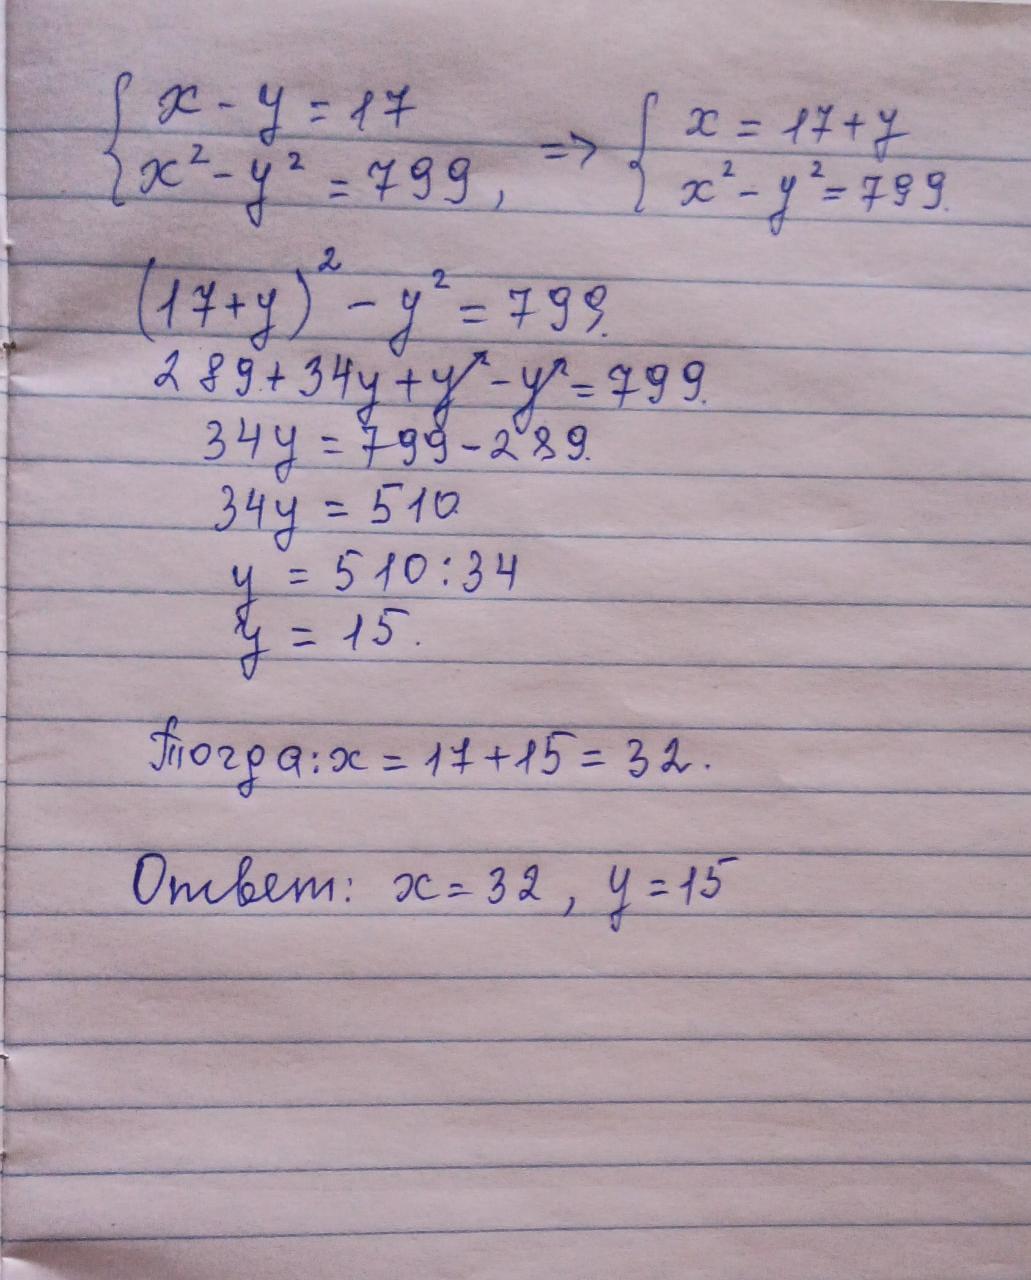 { x - y = 17
x² - y² = 799, => { x = 17 + y
x² - y² = 799.
(17+y)² - y² = 799.
289 + 34y + y² - y² = 799.
34y = 799 - 289.
34y = 510
y = 510 : 34
y = 15.
Тогда: x = 17 + 15 = 32.
Ответ: x = 32, y = 15